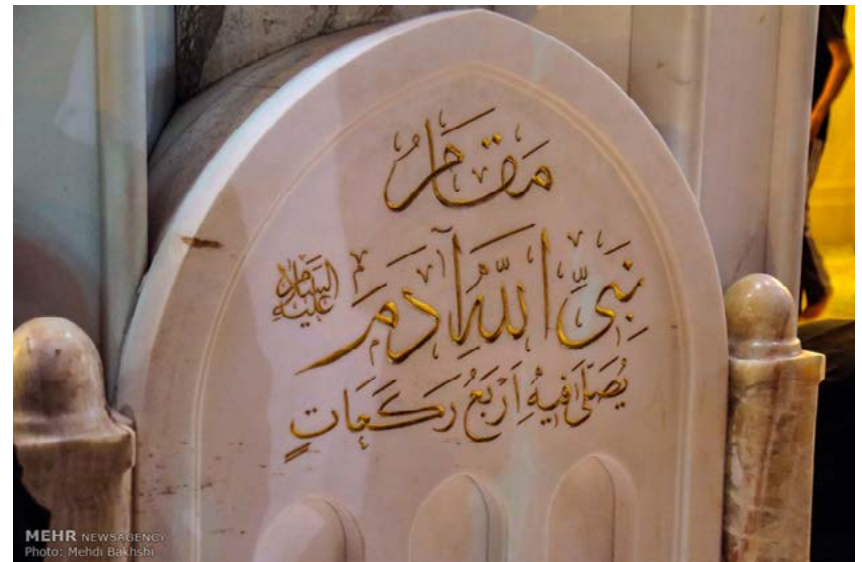 مَقَامُ
نَبِيِّ اللّٰهِ آدَمَ عَلَيْهِ السَّلَامُ
يُصَلّٰى فِيهِ اَرْبَعُ رَكَعَاتٍ
MEHR NEWSAGENCY
Photo: Mehdi Bakhshi